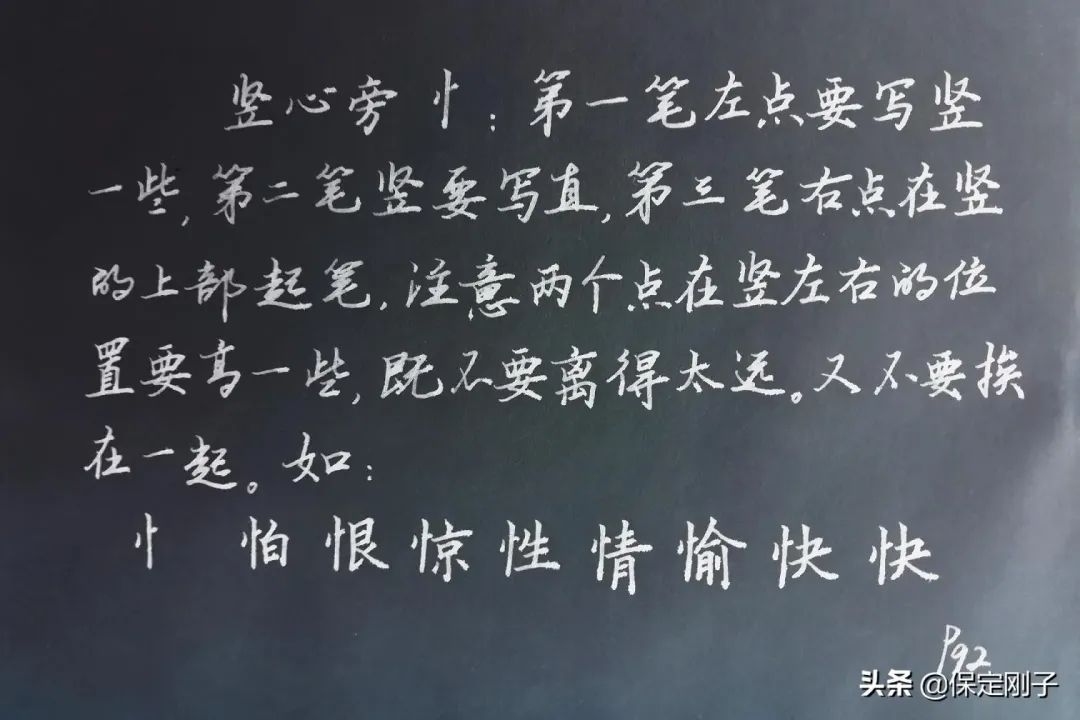 竖心旁忄:第一笔左点要写竖
一些,第二笔竖要写直,第三笔右点在竖
的上部起笔,注意两个点在竖左右的位
置要高一些,既不要离得太远。又不要挨
在一起。如:
忄 怕 恨 惊 性 情 愉 快 快
P92
头条 @保定刚子